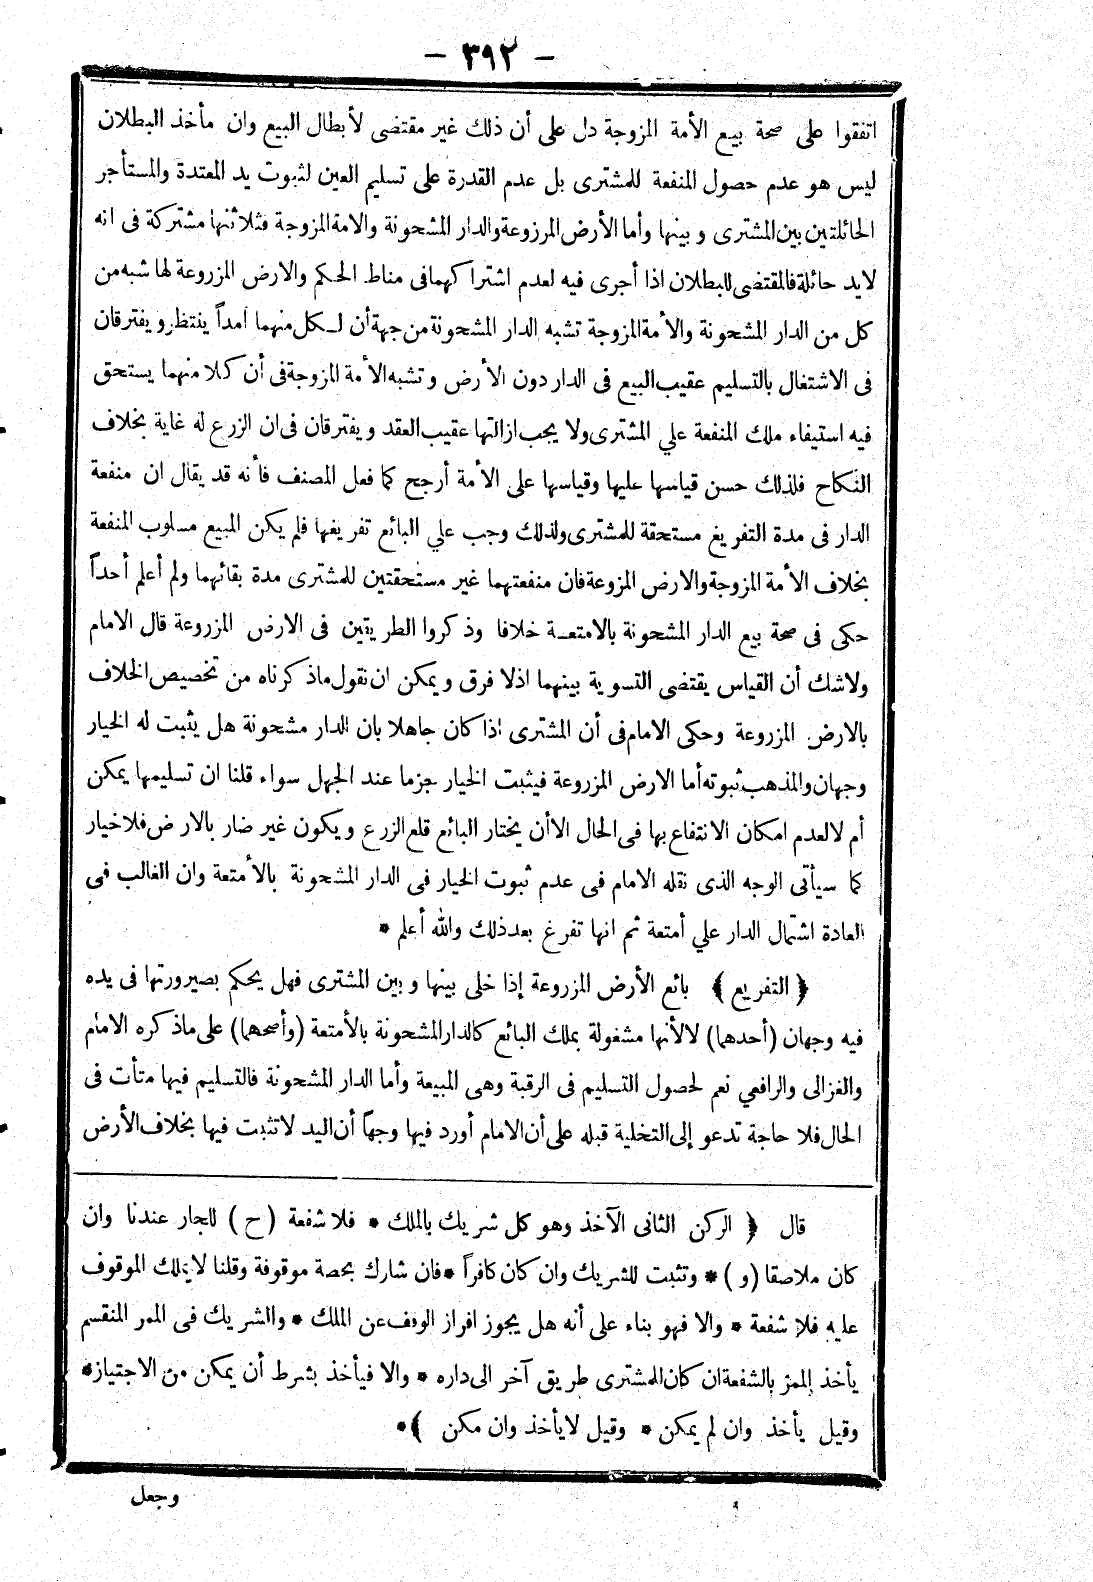 - ٣٩٢ -
اتفقوا على صحة بيع الأمة المزوجة دل على أن ذلك غير مقتضى لأبطال البيع وان مأخذ البطلان
ليس هو عدم حصول المنفعة للمشترى بل عدم القدرة على تسليم العين لثبوت يد المعتدة والمستأجر
الحائلتين بين المشترى وبينها وأما الأرض المزروعة والدار المشحونة والامة المزوجة فثلاثتها مشتركة فى انه
لايد حائلة فالمقتضى للبطلان اذا أجرى فيه لعدم اشتراكهما فى مناط الحكم والارض المزروعة لها شبه من
كل من الدار المشحونة والأمة المزوجة تشبه الدار المشحونة من جهة أن لكل منهما أمداً ينتظر ويفترقان
فى الاشتغال بالتسليم عقيب البيع فى الدار دون الأرض وتشبه الأمة المزوجة فى أن كلا منهما يستحق
فيه استيفاء ملك المنفعة علي المشترى ولا يجب ازالتها عقيب العقد ويفترقان فى ان الزرع له غاية بخلاف
النكاح فلذلك حسن قياسها عليها وقياسها على الأمة أرجح كما فعل المصنف فأنه قد يقال ان منفعة
الدار فى مدة التفريغ مستحقة للمشترى ولذلك وجب علي البائع تفريغها فلم يكن المبيع مسلوب المنفعة
بخلاف الأمة المزوجة والارض المزوعة فان منفعتهما غير مستحقتين للمشترى مدة بقائهما ولم أعلم أحداً
حكى فى صحة بيع الدار المشحونة بالامتعـة خلافا وذكروا الطريتين فى الارض المزروعة قال الامام
ولاشك أن القياس يقتضى التسوية بينهما اذلا فرق ويمكن ان نقول ماذكرناه من تخصيص الخلاف
بالارض المزروعة وحكى الامام فى أن المشترى اذا كان جاهلا بان الدار مشحونة هل يثبت له الخيار
وجهان والمذهب ثبوته أما الارض المزروعة فيثبت الخيار جزما عند الجهل سواء قلنا ان تسليمها يمكن
أم لالعدم امكان الانتفاع بها فى الحال الا أن يختار البائع قلع الزرع ويكون غير ضار بالارض فلاخيار
كما سيأتى الوجه الذى نقله الامام فى عدم ثبوت الخيار فى الدار المشحونة بالأمتعة وان الغالب فى
العادة اشتمال الدار علي أمتعة ثم انها تفرغ بعد ذلك والله أعلم *
﴿ التفريع ﴾ بائع الأرض المزروعة إذا خلى بينها وبين المشترى فهل يحكم بصيرورتها فى يده
فيه وجهان (أحدهما) لا لأنها مشغولة بملك البائع كالدار المشحونة بالأمتعة (وأصحهما) على ماذكره الامام
والغزالى والرافعي نعم لحصول التسليم فى الرقبة وهى المبيعة وأما الدار المشحونة فالتسليم فيها متأت فى
الحال فلا حاجة تدعو إلى التخلية قبله على أن الامام أورد فيها وجهاً أن اليد لاتثبت فيها بخلاف الأرض
قال ﴿ الركن الثانى الآخذ وهو كل شريك بالملك * فلا شفعة (ح) للجار عندنا وان
كان ملاصقا (و) * وتثبت للشريك وان كان كافراً * فان شارك بحصة موقوفة وقلنا لايملك الموقوف
عليه فلا شفعة * والا فهو بناء على أنه هل يجوز افراز الوقف عن الملك * والشريك فى الممر المنقسم
يأخذ الممر بالشفعة ان كان للمشترى طريق آخر الى داره * والا فيأخذ بشرط أن يمكن من الاجتياز *
وقيل يأخذ وان لم يمكن * وقيل لا يأخذ وان مكن ﴾ *
وجعل